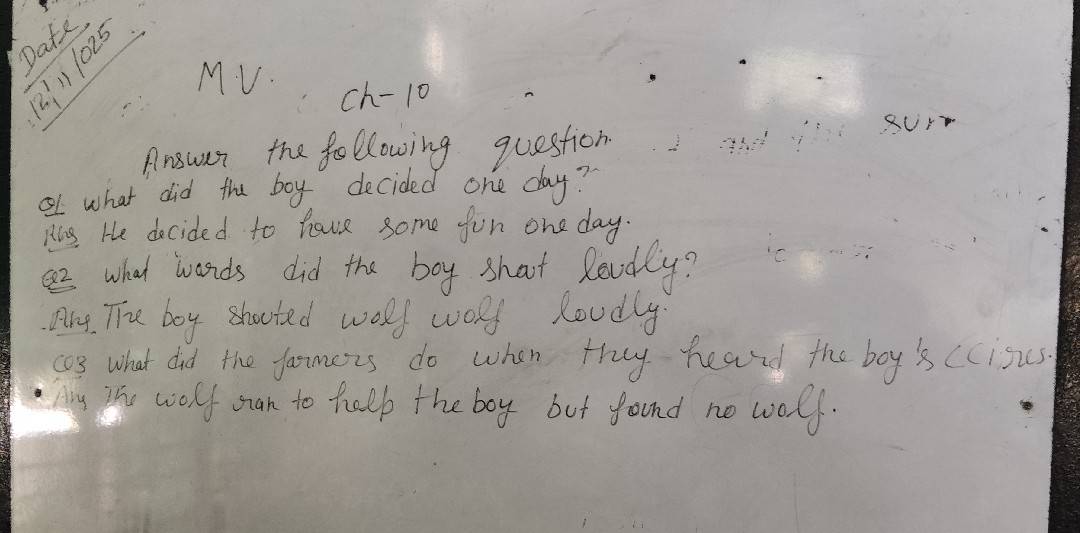 Date
12/11/025
M.V.
Ch-10
Answer the following question
Q1 what did the boy decided one day?
Ans He decided to have some fun one day.
Q2 what words did the boy shout loudly?
Ans The boy shouted wolf wolf loudly.
Q3 what did the farmers do when they heard the boy's
Ans The wolf ran to help the boy but found no wolf.